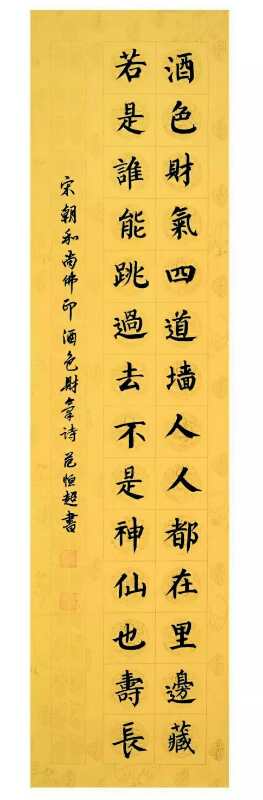 酒色財氣四道墙人人都在里邊藏
若是誰能跳過去不是神仙也壽長
宋朝和尚佛印酒色财氣诗范恒超書